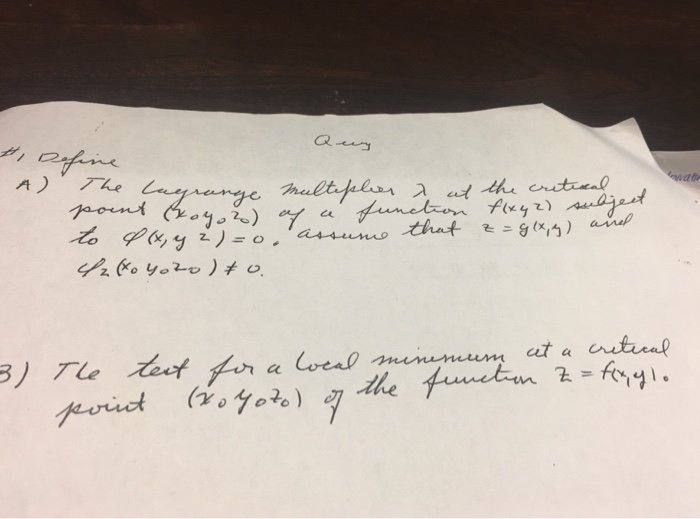 Quiz
#1 Define
A) The Lagrange multiplier λ at the critical
point (x₀y₀z₀) of a function f(xyz) subject
to φ(x,y z) = 0. assume that z = g(x,y) and
φz(x₀ y₀z₀) ≠ 0.
B) The test for a local minimum at a critical
point (x₀y₀z₀) of the function z = f(x,y).